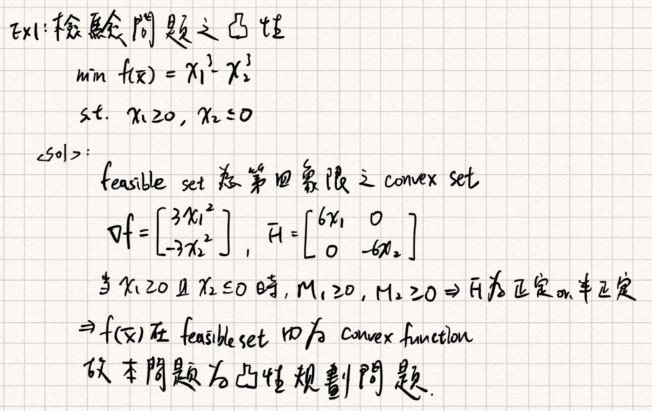 Ex1: 檢驗問題之凸性
min f(x̄) = x₁³ - x₂³
s.t. x₁ ≥ 0, x₂ ≤ 0
<sol>:
feasible set 為第四象限之 convex set
∇f = [3x₁² ; -3x₂²], H̄ = [6x₁ 0 ; 0 -6x₂]
當 x₁ ≥ 0 且 x₂ ≤ 0 時, M₁ ≥ 0, M₂ ≥ 0 ⇒ H̄ 為正定 or 半正定
⇒ f(x̄) 在 feasible set 內為 convex function
故本問題為凸性規劃問題.